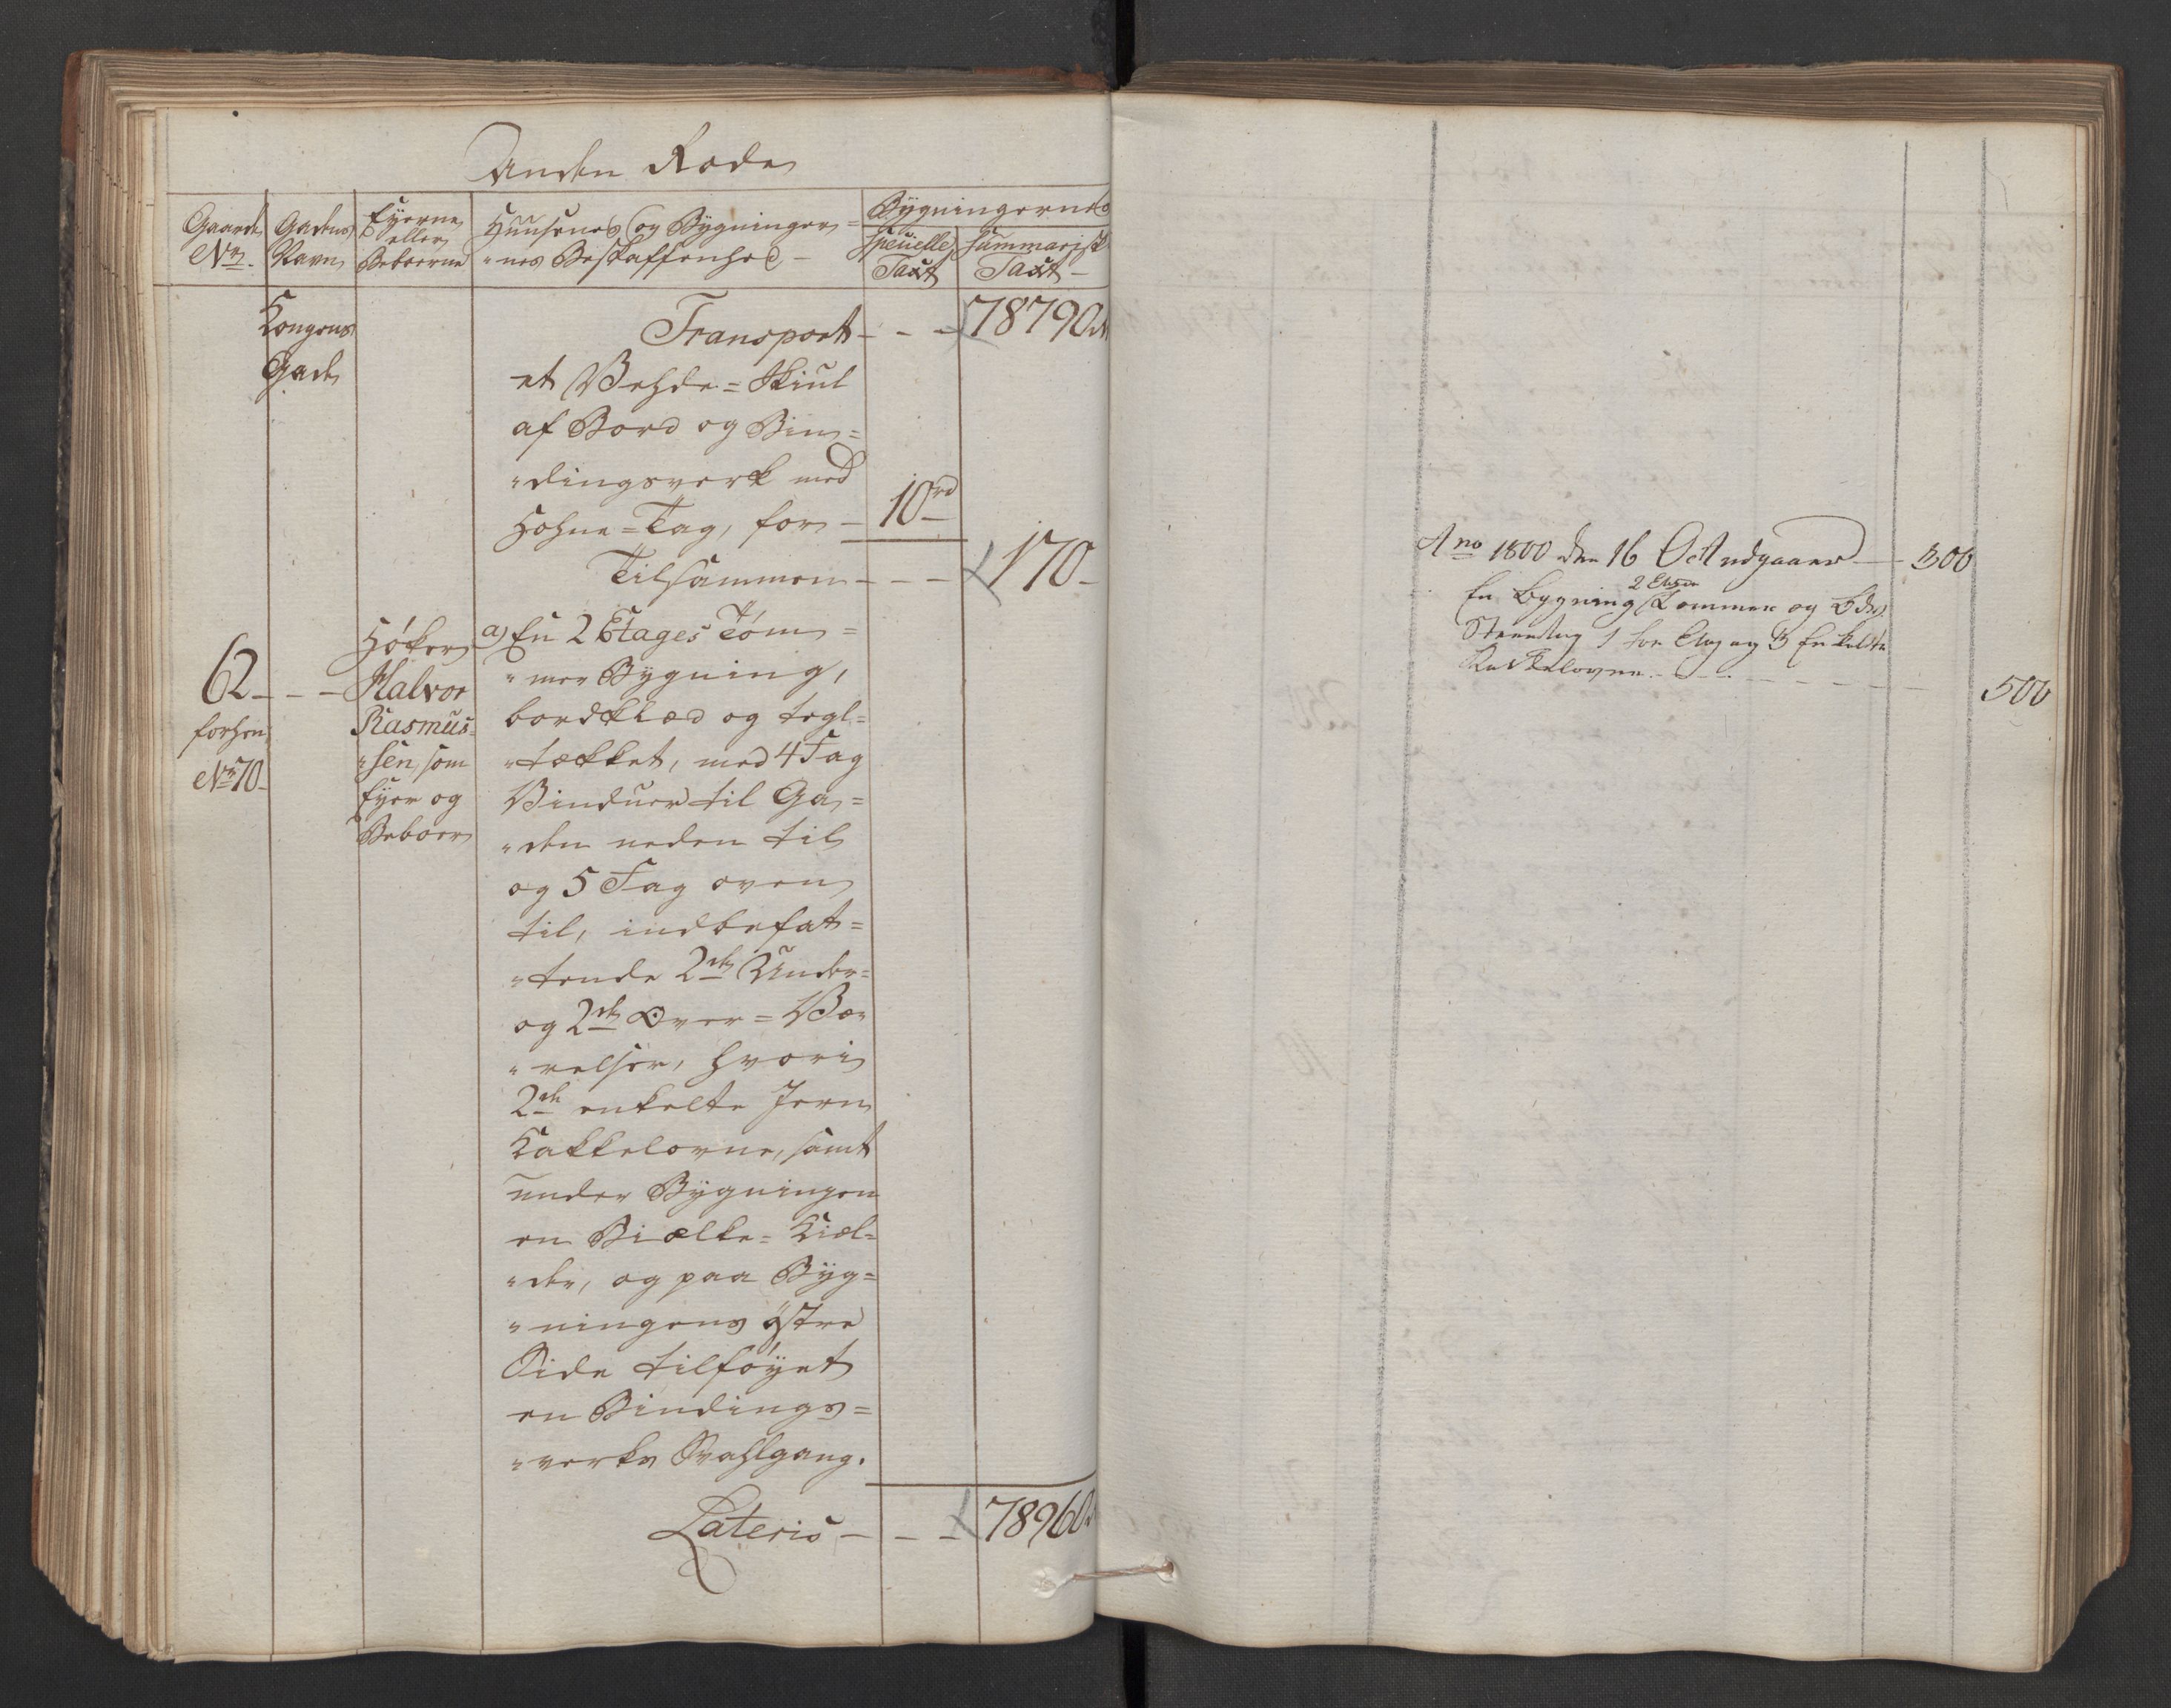 Anden Rode
Gaards No.
Gadens Navn
Eyerne eller Beboerne
Huusenes og Bygninger=
"nes Beskaffenhed -
Bygningernes
Speciele Taxt
Summarisk Taxt -
Kongens
Gade
Transport - - - 78790 rd
et Vehde=Skiul
af Bord og Bin=
"dingsverk med
Hohne=Tag, for - 10 rd
Tilsammen - - - 170 -
62 - - -
forhen
No. 70 -
Høker
Halvor
Rasmus=
"sen, som
Eyer og
Beboer
a) En 2 Etages Töm=
"mer Bygning,
bordklæd og tegl=
"tækket, med 4 Fag
Vinduer til Ga=
"den neden til
og 5 Fag oven
til, indbefat=
"tende 2de Under=
og 2de Over=Væ=
"relser, hvori
2de enkelte Jern
Kakkelovne, samt
under Bygningen
en Biælke=Kiel=
"der, og paa Byg=
"ningens østre
Side tilføyet
en Bindings=
"verks Svahlgang.
Lateris - - - 78960 rd
Ano 1800 den 16 Oct udgaaer - 300
En Bygning 2 Etage Tømmer og
Steentag 1 og 3 Enkelte
Kakelovne - - - 500